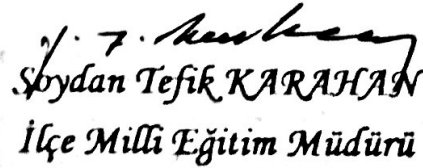 Soydan Tefik KARAHAN
İlçe Milli Eğitim Müdürü